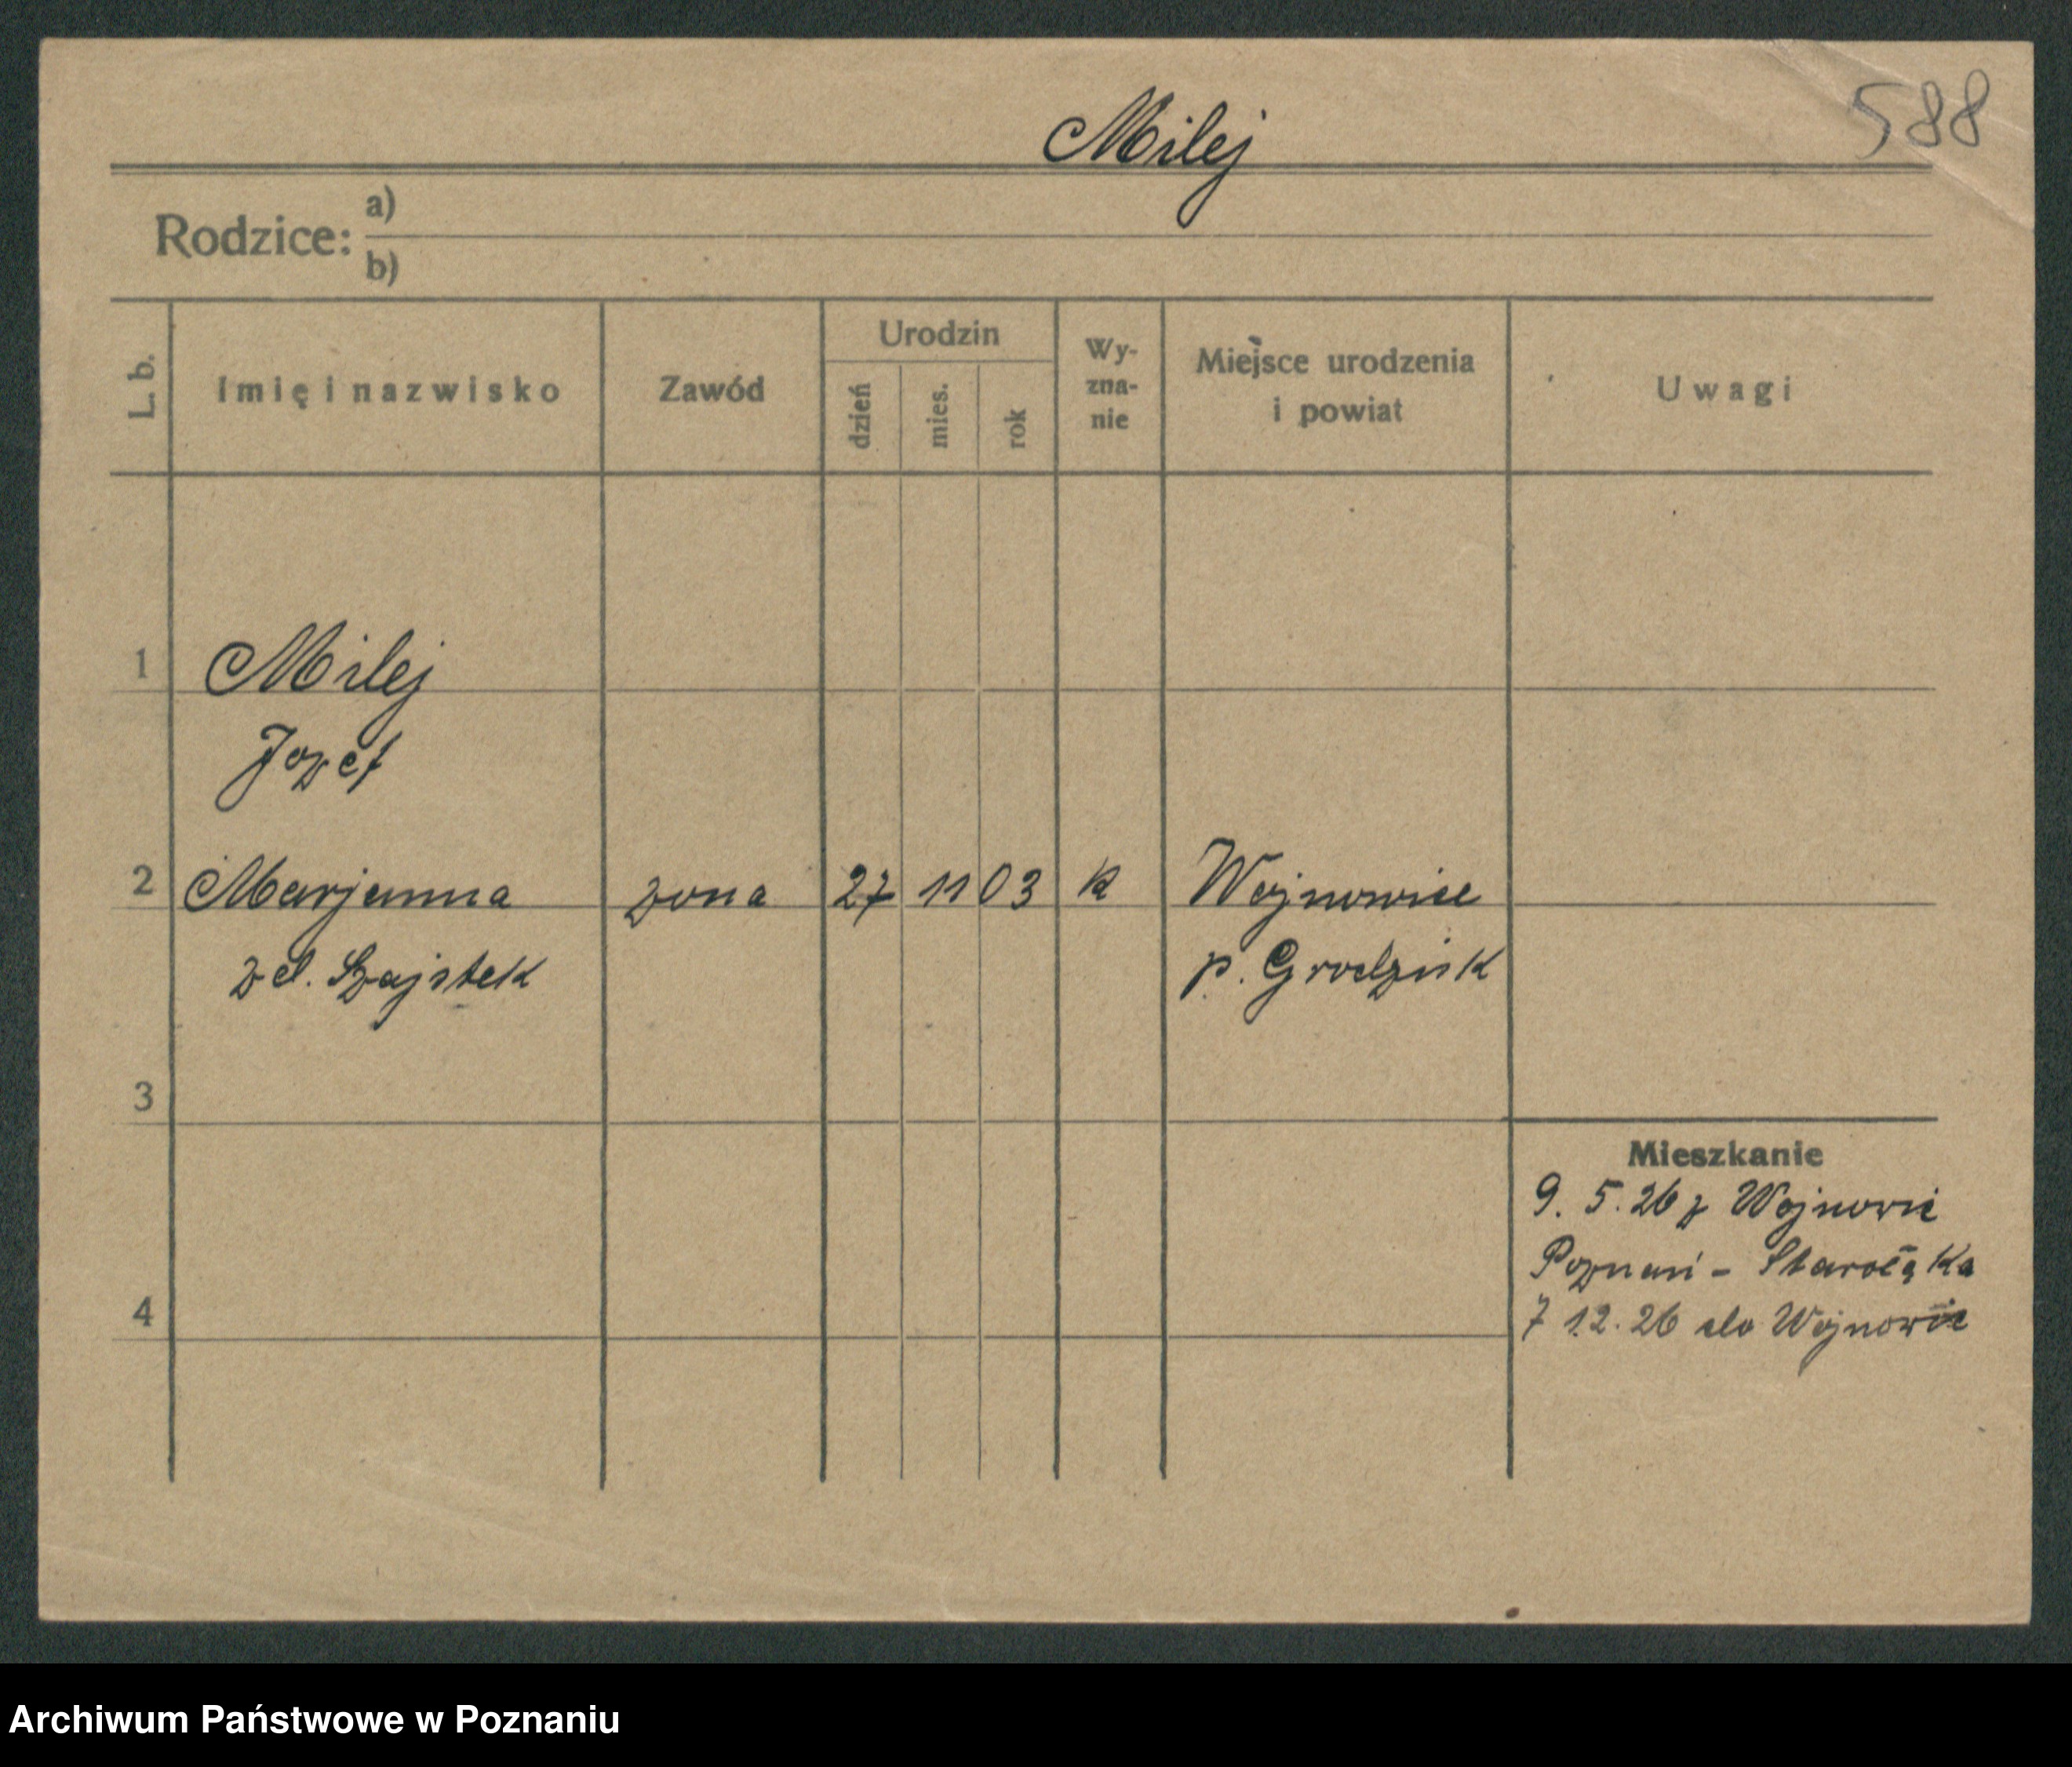 Milej
588
Rodzice: a)
b)
L. b.
Imię i nazwisko
Zawód
Urodzin
dzień
mies.
rok
Wy-
zna-
nie
Miejsce urodzenia
i powiat
Uwagi
1 Milej
Jozef
2 Marjanna zona 27 11 03 K Wojnowice
zd. Szajstek p. Grodzisk
3
Mieszkanie
9. 5. 26 z Wojnowic
Poznań - Starołęka
4
7 12. 26 do Wojnowic
Archiwum Państwowe w Poznaniu